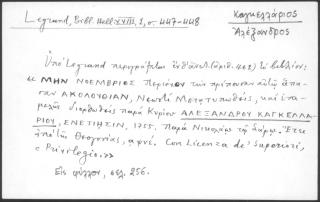 Legrand, Bibl. Hell. XVIII, 1, σ. 447-448
Καγκελλάριος
Ἀλέξανδρος
Ὑπὸ Legrand περιγράφεται ἐνθ' ἀνωτ. (ἀριθ. 462) τὸ βιβλίον:
« ΜΗΝ ΝΟΕΜΒΡΙΟΣ Περιέχων τὴν πρέπουσαν αὐτῷ ἅπα-
σαν ΑΚΟΛΟΥΘΙΑΝ, Νεωστὶ Μετατυπωθεὶς, καὶ ἐπι-
μελῶς διορθωθεὶς παρὰ Κυρίου ΑΛΕΞΑΝΔΡΟΥ ΚΑΓΚΕΛΛΑ-
ΡΙΟΥ, ΕΝΕΤΙΗΣΙΝ, 1755. Παρὰ Νικολάῳ τῷ Σάρῳ. Ἔτει
ἀπὸ τῆς Θεογονίας, αψνέ. Con Licenza de' Superiori,
e Privilegio.»
Εἰς φύλλον, σελ. 256.